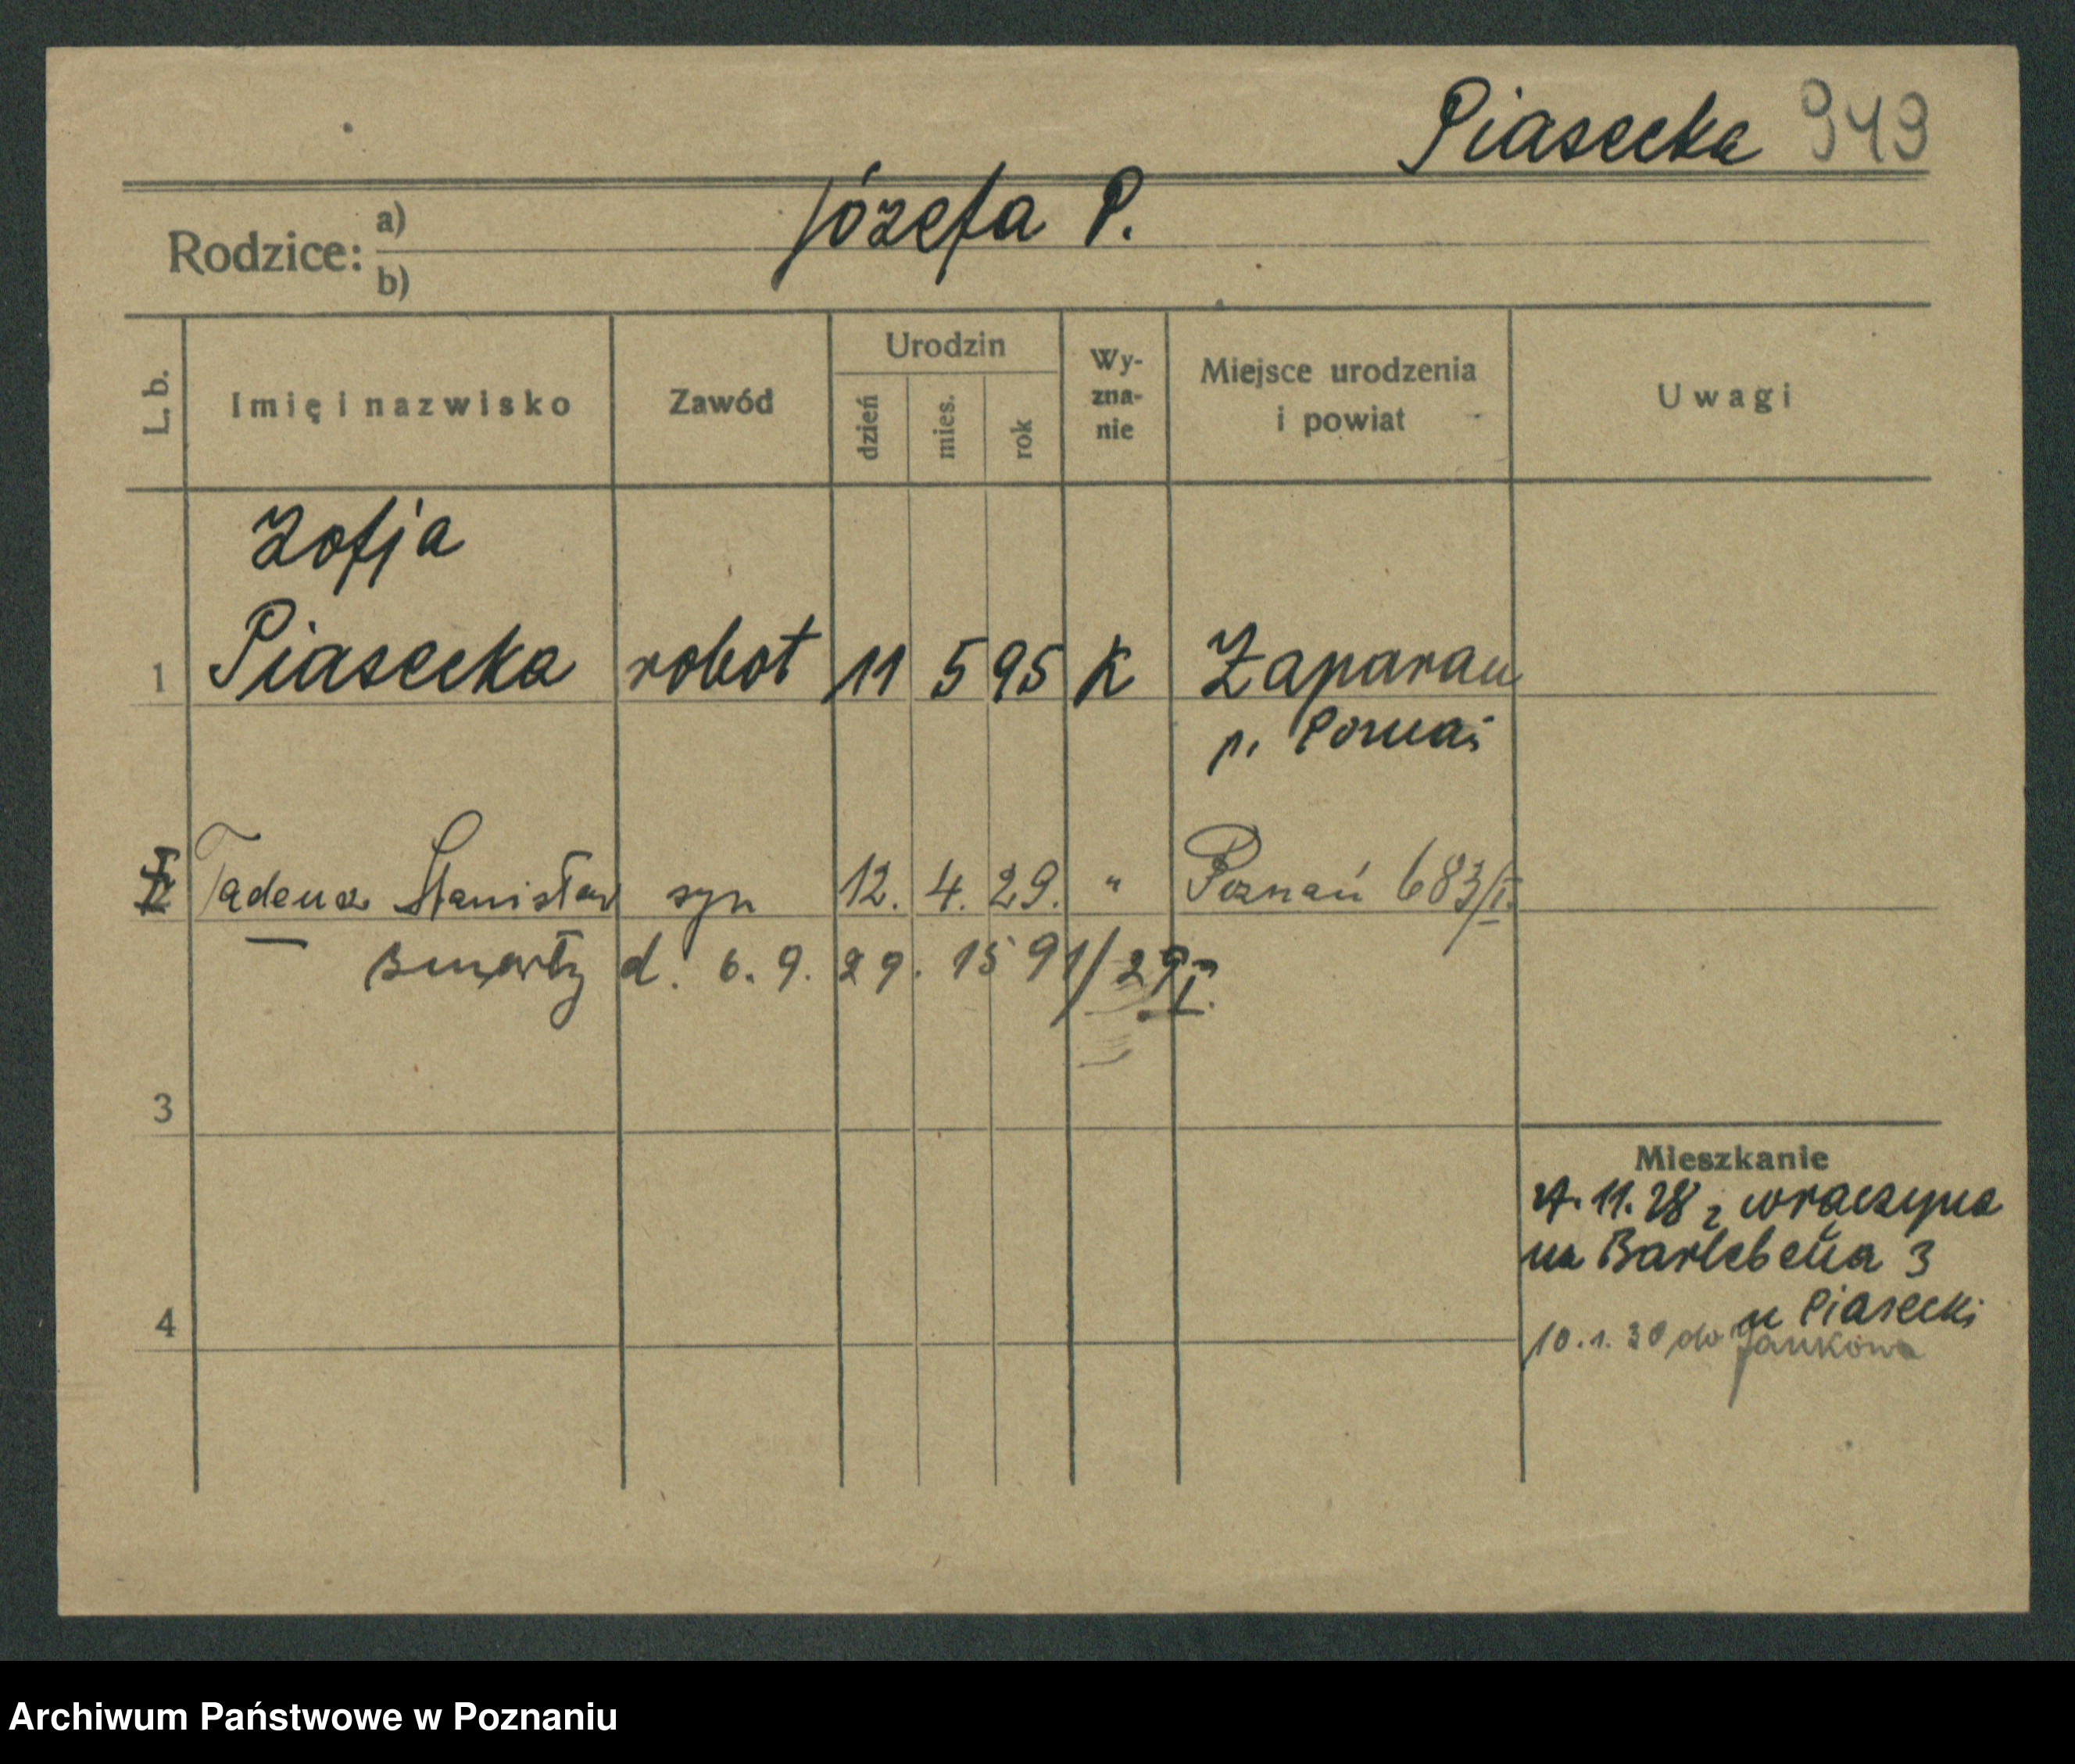 Piasecka 949
Rodzice: a) Józefa P.
b)
L. b.
Imię i nazwisko
Zawód
Urodzin
dzień mies. rok
Wy-
zna-
nie
Miejsce urodzenia
i powiat
Uwagi
Zofja
1 Piasecka robot 11 5 95 K
p.
Tadeusz Stanisław syn 12. 4. 29. " Poznań 683/I.
zmarły d. 6. 9. 29. 1591/29 I.
3
Mieszkanie
11. 28 z
na 3
4
u Piasecki
10. 1. 30 do Jankowa
Archiwum Państwowe w Poznaniu